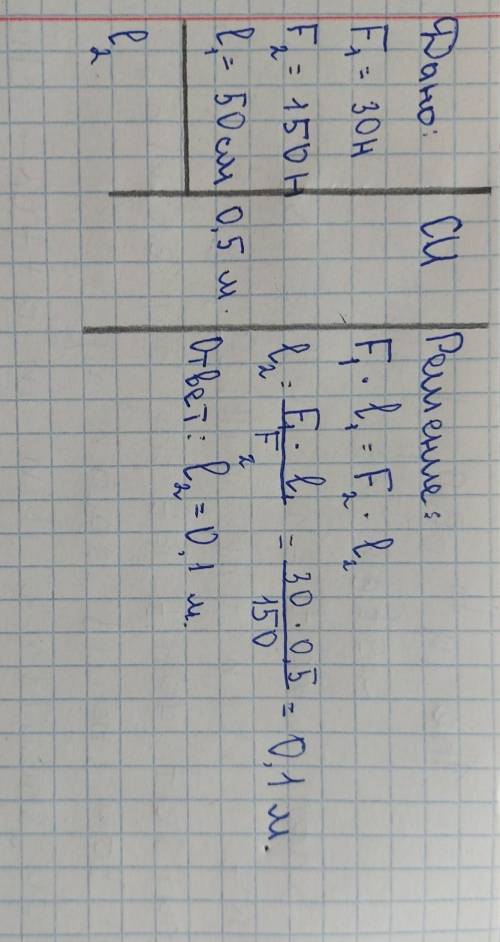 Дано:
F₁ = 30н
F₂ = 150н
l₁ = 50см
l₂
СИ
0,5 м.
Решение:
F₁ · l₁ = F₂ · l₂
l₂ = F₁ · l₁ / F₂ = 30 · 0,5 / 150 = 0,1 м.
Ответ: l₂ = 0,1 м.